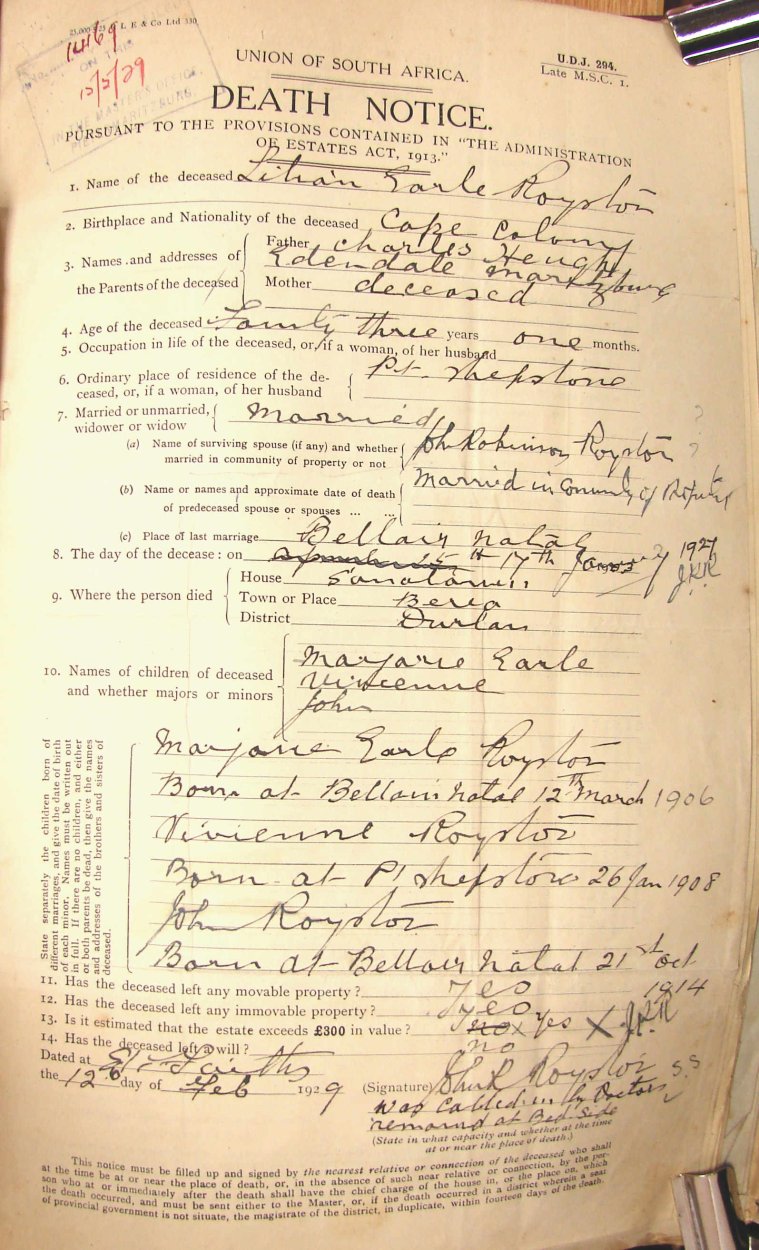 L E & Co Ltd 330
14469
ON THE
15/5/29
IN THE MASTER'S OFFICE,
U.D.J. 294.
Late M.S.C. 1.
UNION OF SOUTH AFRICA.
DEATH NOTICE.
PURSUANT TO THE PROVISIONS CONTAINED IN "THE ADMINISTRATION
OF ESTATES ACT, 1913."
1. Name of the deceased Lilian Earle Royston
2. Birthplace and Nationality of the deceased Cape Colony
3. Names and addresses of the Parents of the deceased
Father Charles
Edendale Maritzburg
Mother deceased
4. Age of the deceased Fourty three years one months.
5. Occupation in life of the deceased, or, if a woman, of her husband
6. Ordinary place of residence of the de-
ceased, or, if a woman, of her husband
Pt. Shepstone
7. Married or unmarried,
widower or widow
Married
(a) Name of surviving spouse (if any) and whether
married in community of property or not
John Robinson Royston
(b) Name or names and approximate date of death
of predeceased spouse or spouses ... ...
Married in Community of Property
(c) Place of last marriage Bellair Natal
8. The day of the decease : on 17th 1927
J.R.R
9. Where the person died
House Sanatorium
Town or Place Berea
District Durban
10. Names of children of deceased
and whether majors or minors
Marjorie Earle
Vivienne
John
State separately the children born of
different marriages, and give the date of birth
of each minor. Names must be written out
in full. If there are no children, and either
or both parents be dead, then give the names
and addresses of the brothers and sisters of
deceased.
Marjorie Earle Royston
Born at Bellair Natal 12th March 1906
Vivienne Royston
Born at Pt Shepstone 26 Jan 1908
John Royston
Born at Bellair Natal 21st Oct
1914
11. Has the deceased left any movable property ? Yes
12. Has the deceased left any immovable property ? Yes
13. Is it estimated that the estate exceeds £300 in value ? no x Yes X J.R.R
14. Has the deceased left a will ? no
Dated at St. Faiths
the 12 day of Feb 1929
(Signature) John R Royston
was called in by Doctors
remained at Bed Side
(State in what capacity and whether at the time
at or near the place of death.)
This notice must be filled up and signed by the nearest relative or connection of the deceased who shall
at the time be at or near the place of death, or, in the absence of such near relative or connection, by the per-
son who at or immediately after the death shall have the chief charge of the house in, or the place on, which
the death occurred, and must be sent either to the Master, or, if the death occurred in a district wherein a seat
of provincial government is not situate, the magistrate of the district, in duplicate, within fourteen days of the death.